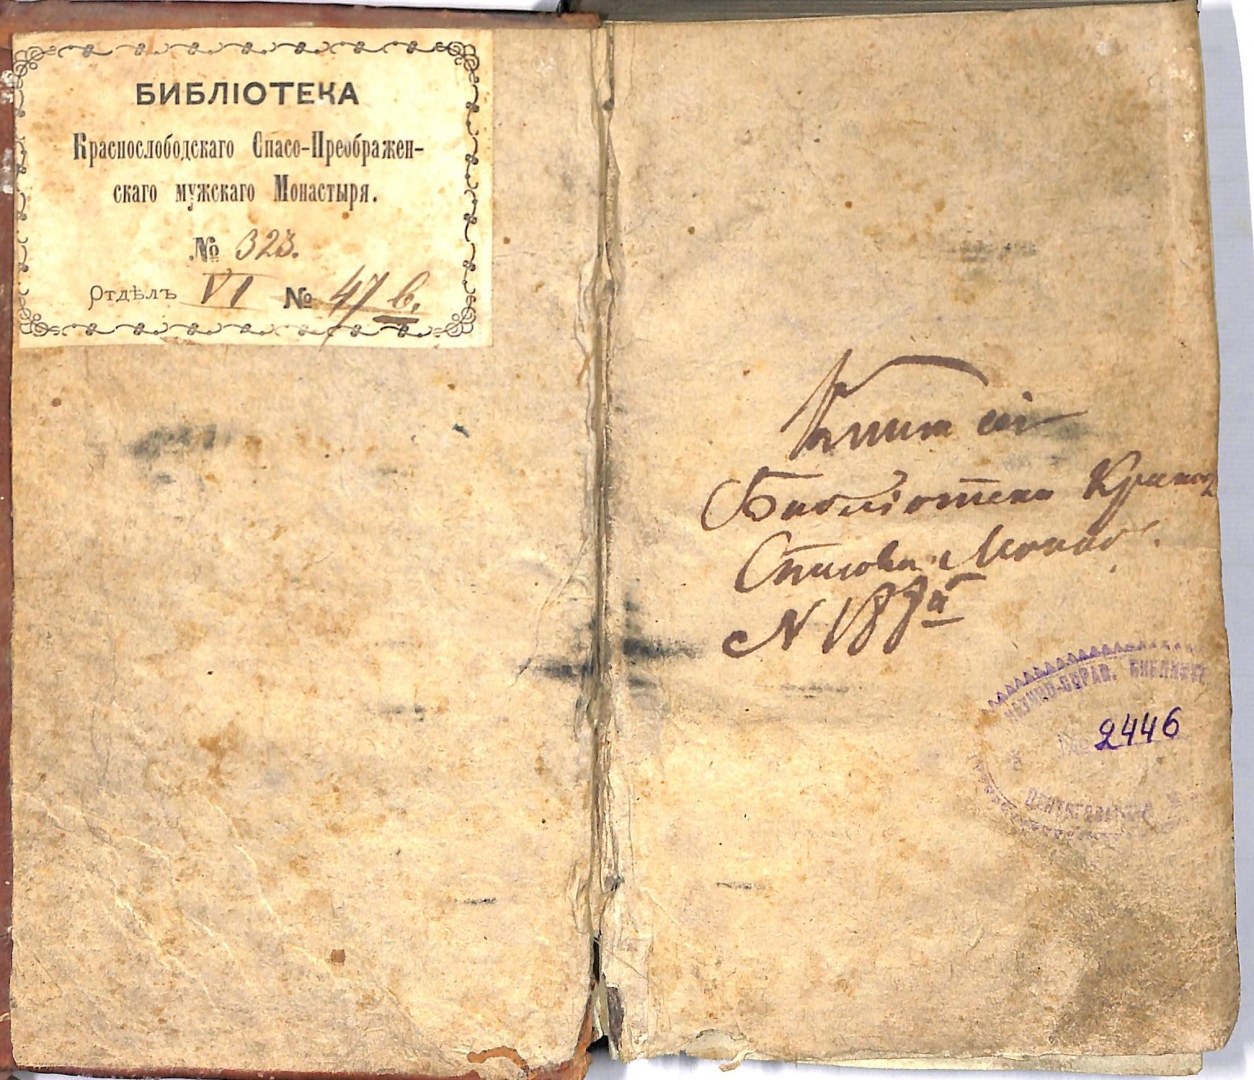 БИБЛІОТЕКА
Краснослободскаго Спасо-Преображен-
скаго мужскаго Монастыря.
№ 323.
Отдѣлъ VI № 47 в.
Книга сія
Библіотеки
Спасова
N 188
НАУЧНО-СПРАВ. БИБЛИОТ
2446